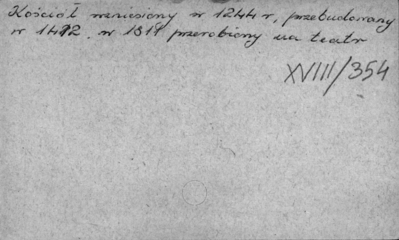 Kościół wzniesiony w 1244 r, przebudowany
w 1482, w 1817 przerobiony na teatr
XVIII/354